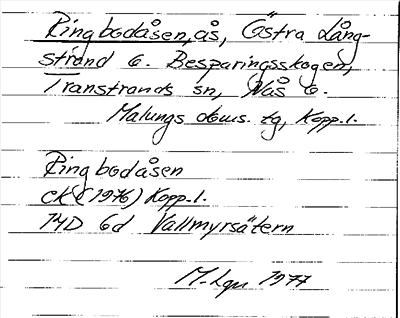 Ringbodåsen, ås, Östra Lång-
strand o. Besparingsskogen,
Transtrands sn, Nås o.
Malungs doms. tg, Kopp. l.
Ringbodåsen
EK (1976) Kopp. l.
14D 6d Vallmyrsätern
1977